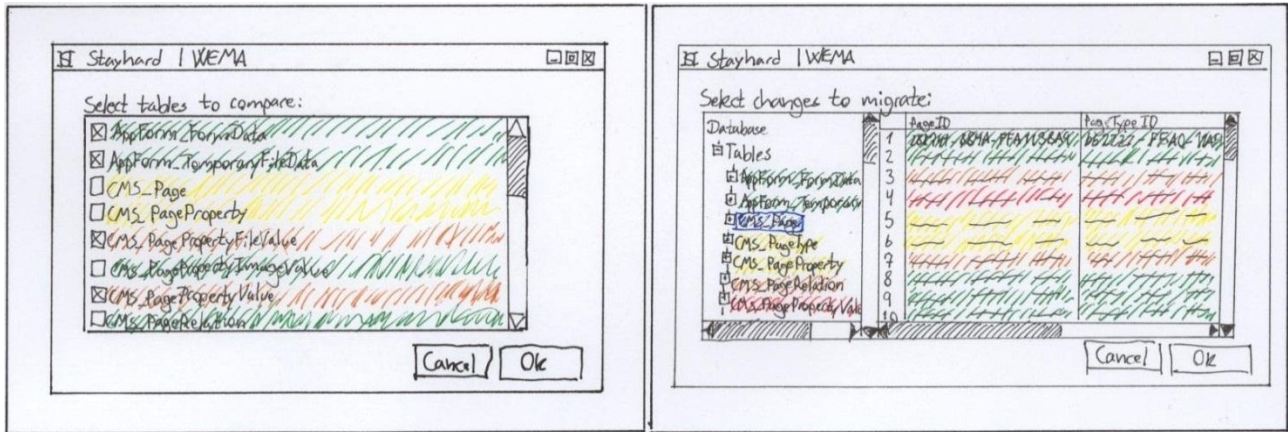 Stayhard | WEMA
Select tables to compare:
AppForm_FormData
AppForm_TemporaryFileData
CMS_Page
CMS_PageProperty
CMS_PagePropertyFileValue
CMS_PagePropertyImageValue
CMS_PagePropertyValue
CMS_PageRelation
Cancel
Ok
Stayhard | WEMA
Select changes to migrate:
Database
Tables
AppForm_FormData
AppForm_Temporary
CMS_Page
CMS_PageType
CMS_PageProperty
CMS_PageRelation
CMS_PagePropertyValu
PageID
PageTypeID
1
2
3
4
5
6
7
8
9
10
Cancel
Ok